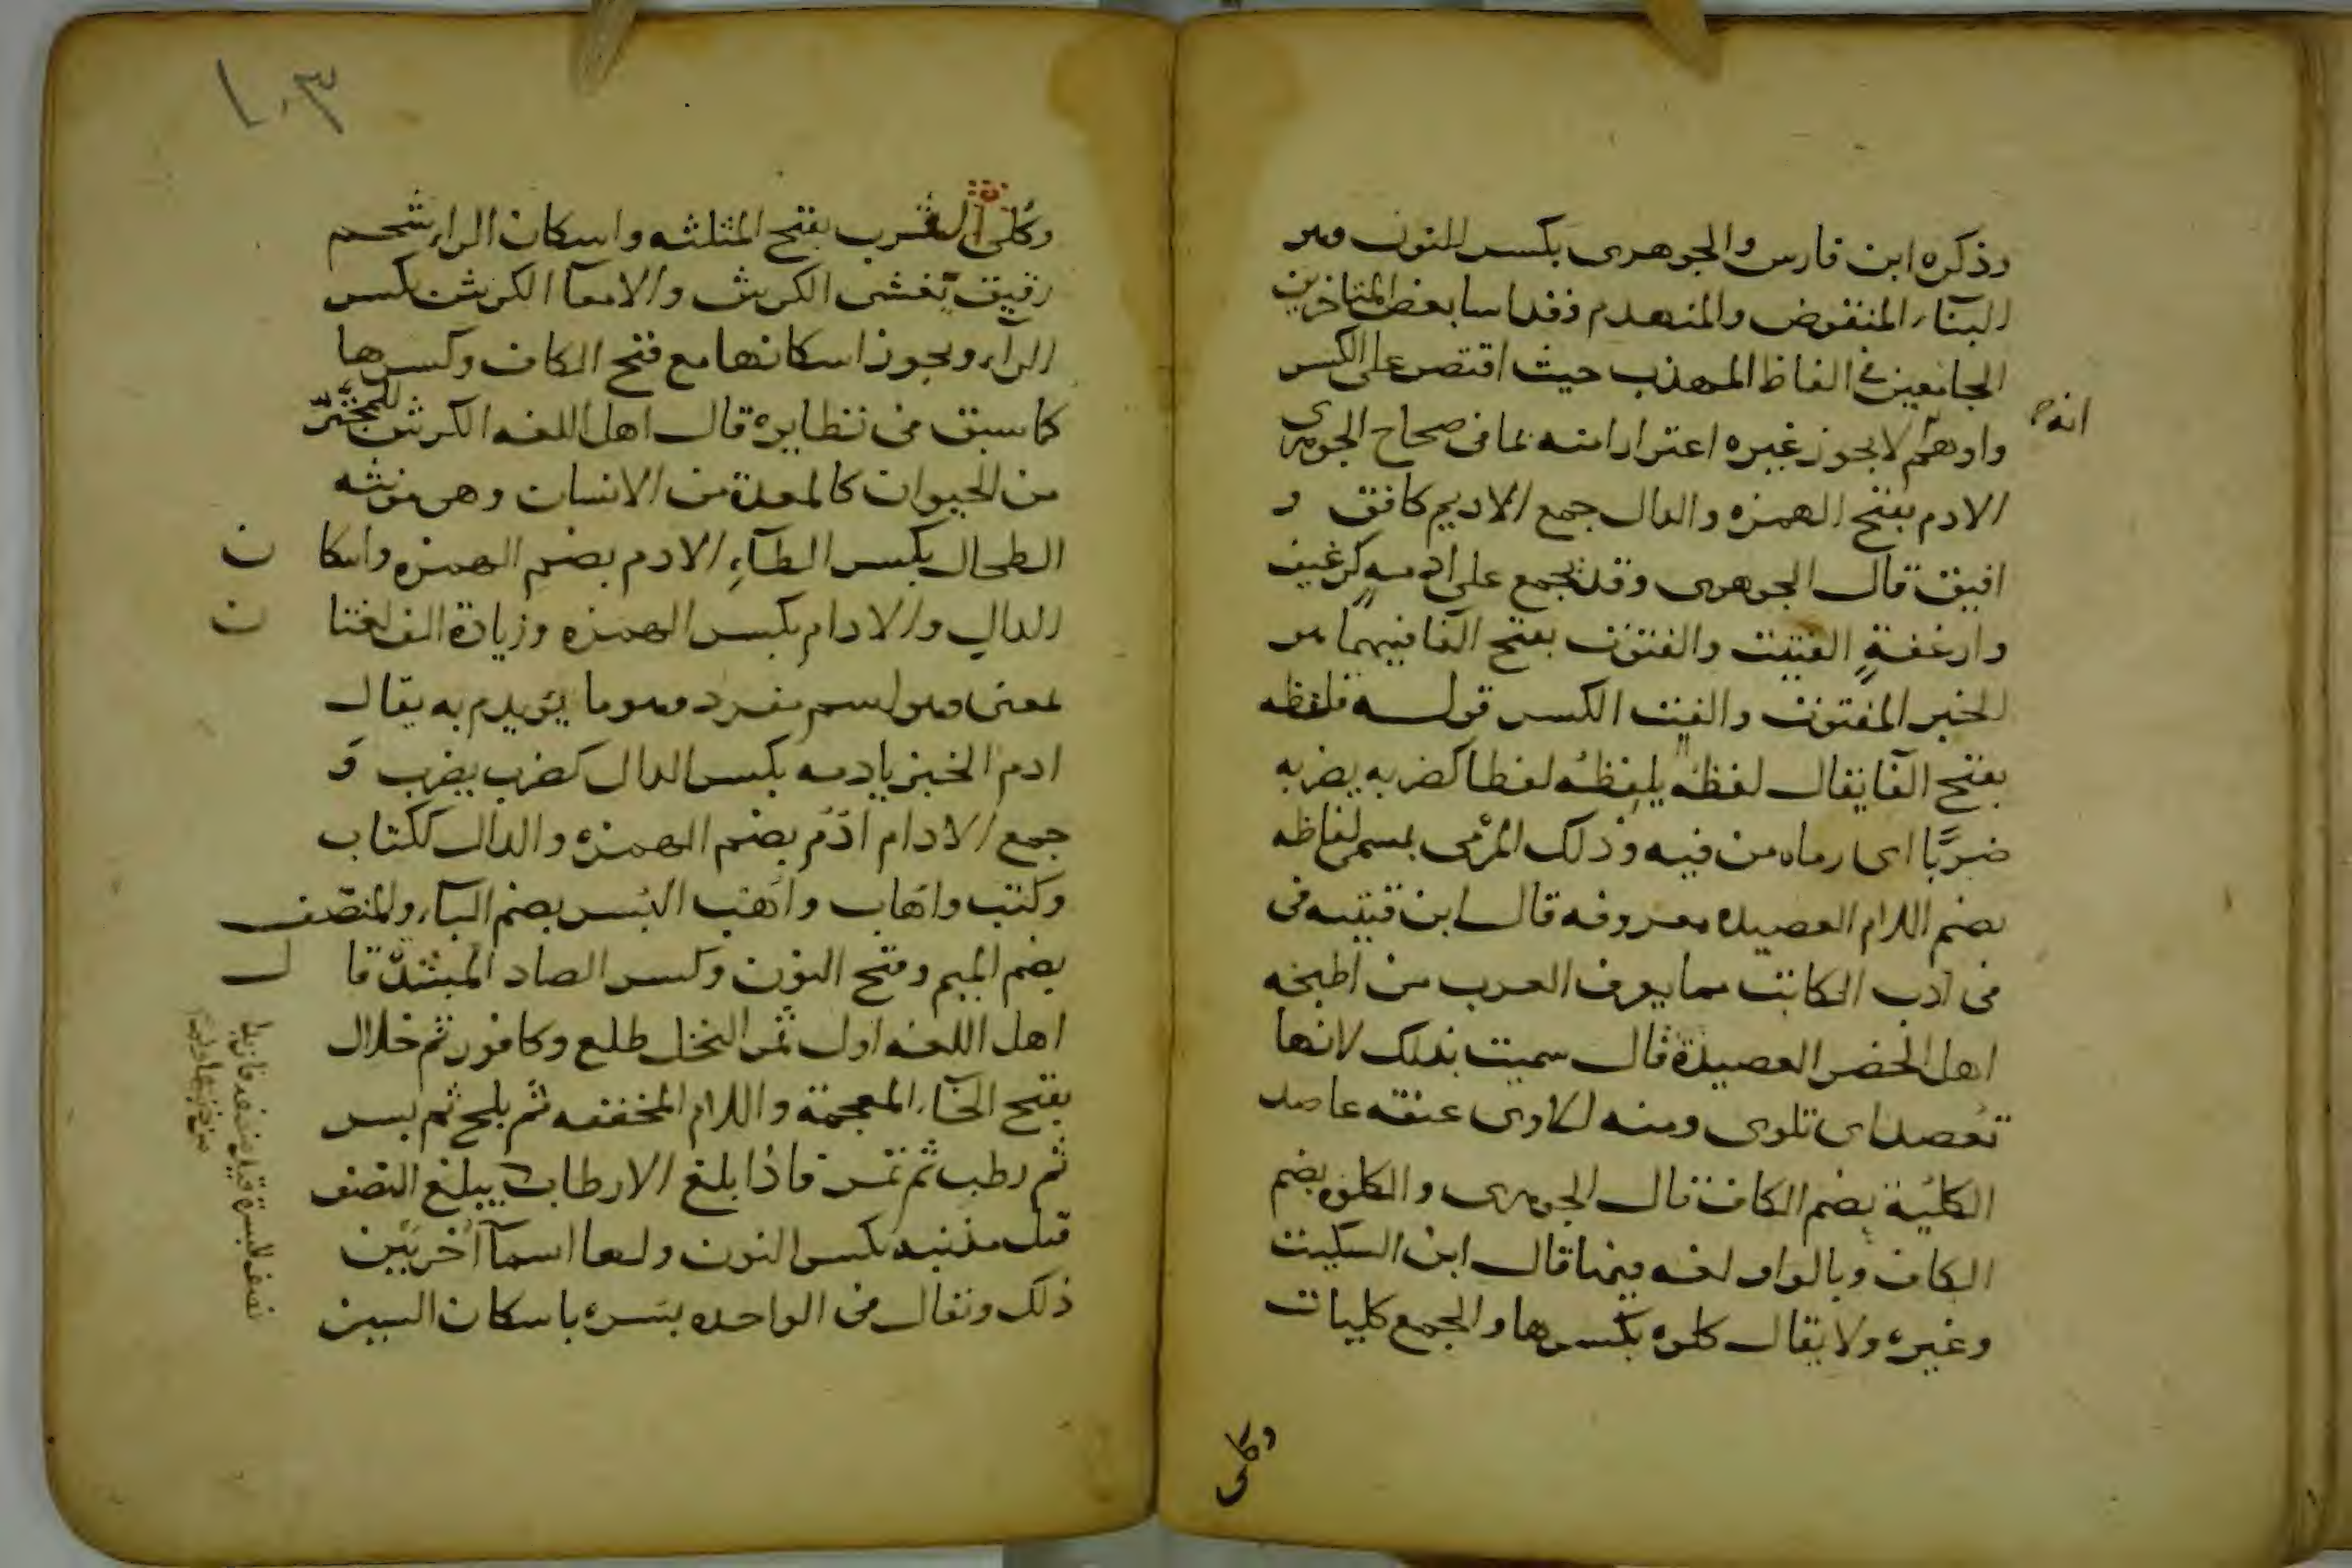 وذكره ابن فارس والجوهرى بكسر النون وهو
البناء المنقوض والمنهدم فقد اسا بعض المتاخرين
الجامعين في الفاظ المهذب حيث اقتصر على الكسر
واوهم لا يجوز غيره اغترارا منه بما فى صحاح الجوهرى
انه
الادم بفتح الهمزه والدال جمع الاديم كافق و
افيق قال الجوهرى وقد يجمع على ادمه كرغيف
وارغفة الفتيت والفتوت بفتح الفا فيهما هو
الخبز المفتوت والفت الكسر قوله فلفظه
بفتح الفا يقال لفظه يلفظه لفظا كضربه يضربه
ضربا اى رماه من فيه وذلك المرمى يسمى لفاظه
بضم اللام العصيده معروفه قال ابن قتيبه فى
فى ادب الكاتب مما يعرف العرب من اطبخه
اهل الحضر العصيدة قال سميت بذلك لانها
تعصد اى تلوى ومنه للاوى عنقه عاصد
الكلية بضم الكاف قال الجوهرى والكلوه بضم
الكاف وبالواو لغه فيها قال ابن السكيت
وغيره ولا يقال كلوه بكسرها والجمع كليات
وكلى
١٠٣
وكلى الثرب بفتح المثلثه واسكان الراء شحم
رقيق يغشى الكرش والامعا الكرش بكسر
الراء ويجوز اسكانها مع فتح الكاف وكسرها
كما سبق فى نظايره قال اهل اللغه الكرش للمجتر
من الحيوان كالمعدة من الانسان وهى مونثه
الطحال بكسر الطاء الادم بضم الهمزه واسكا ن
الدال والادام بكسر الهمزه وزيادة الف لغتا ن
بمعنى وهو اسم مفرد وهو ما يؤيدم به يقال
ادم الخبز يادمه بكسر الدال كضرب يضرب و
جمع الادام ادم بضم الهمزه والدال ككتاب
وكتب واهاب واهب البسر بضم الباء والمنصف
بضم الميم وفتح النون وكسر الصاد المشددة قا ل
اهل اللغه اول ثمر النخل طلع وكافور ثم خلال
بفتح الخاء المعجمة واللام المخففه ثم بلح ثم بسر
ثم رطب ثم تمر فاذا بلغ الارطاب يبلغ النصف
قيل منصفه بكسر النون ولها اسما اخر بين
ذلك ويقال فى الواحده بسره باسكان السين